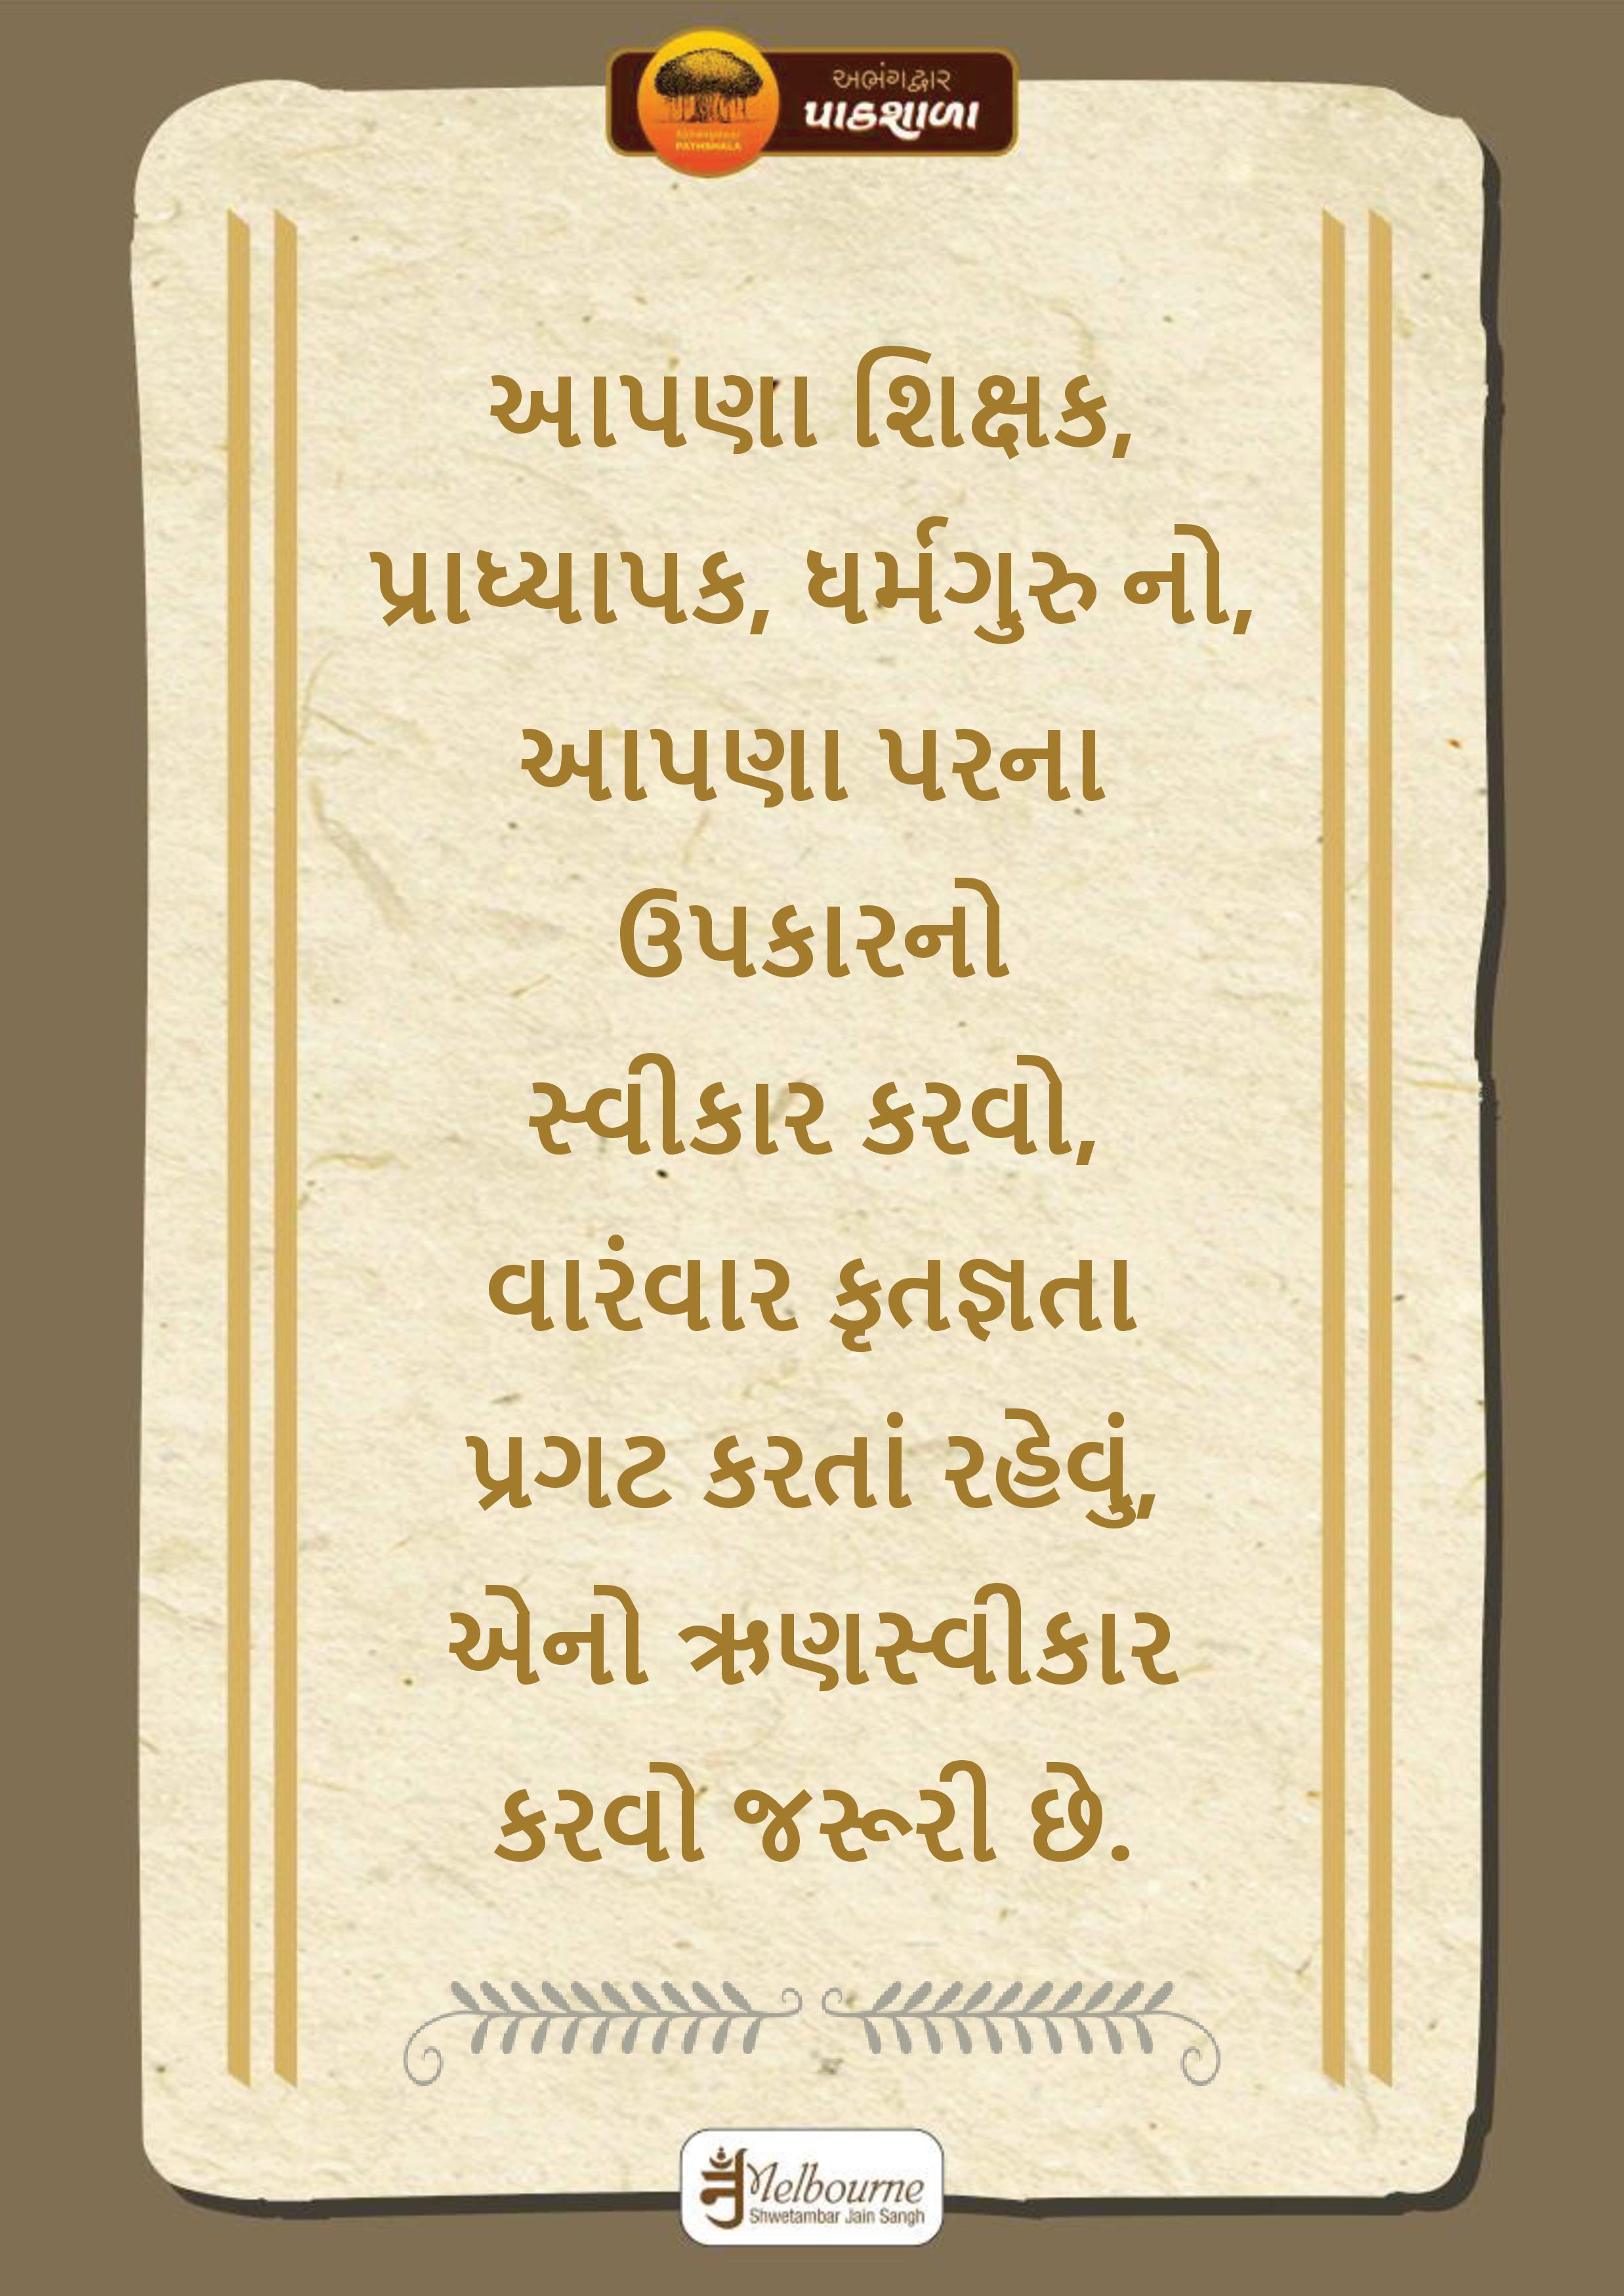 અભંગદ્વાર
પાઠશાળા
PATHSHALA
આપણા શિક્ષક,
પ્રાધ્યાપક, ધર્મગુરુ નો,
આપણા પરના
ઉપકારનો
સ્વીકાર કરવો,
વારંવાર કૃતજ્ઞતા
પ્રગટ કરતાં રહેવું,
એનો ઋણસ્વીકાર
કરવો જરૂરી છે.
Melbourne
Shwetambar Jain Sangh